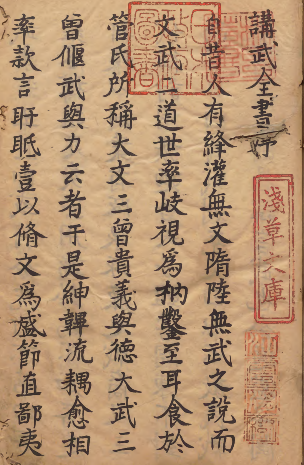 講武全書序
自昔人有絳灌無文隋陸無武之說而
文武一道世率岐視為枘鑿至耳食於
管氏所稱大文三曾貴義與德大武三
曾偃武與力云者于是紳韠流耦愈相
率款言盱眂壹以脩文為盛節直鄙夷
淺草文庫